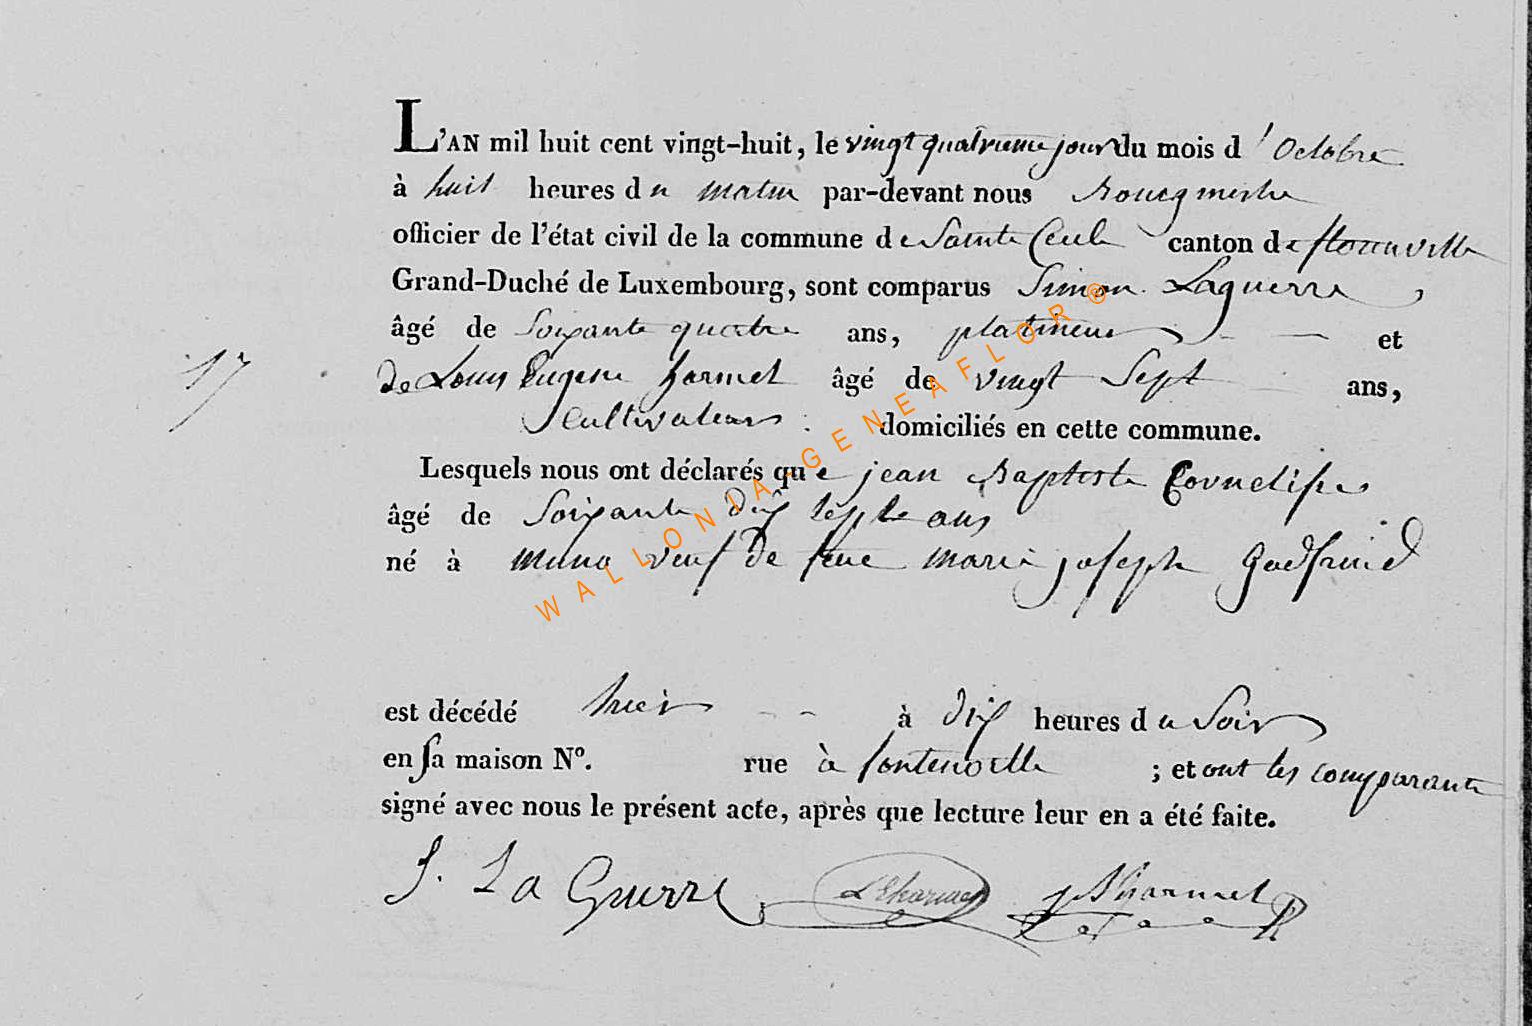 L'AN mil huit cent vingt-huit, le vingt quatrieme jour du mois d'Octobre
à huit heures du matin par-devant nous Bourgmestre
officier de l'état civil de la commune de Sainte Cecile canton de florenville
Grand-Duché de Luxembourg, sont comparus Simon Laguerre,
âgé de Soixante quatre ans, platineur et
17
de Louis Eugene harmel âgé de vingt Sept ans,
Cultivateurs : domiciliés en cette commune.
Lesquels nous ont déclarés que jean Baptiste Cornelis
âgé de Soixante dix sept ans
né à muno veuf de feue marie joseph Godfruid
est décédé hier à dix heures du Soir
en sa maison N°. rue à fontenoille ; et ont les comparants
signé avec nous le présent acte, après que lecture leur en a été faite.
S. La Guerre LEharmel harmel
WALLONIA-GENEAFLOR®